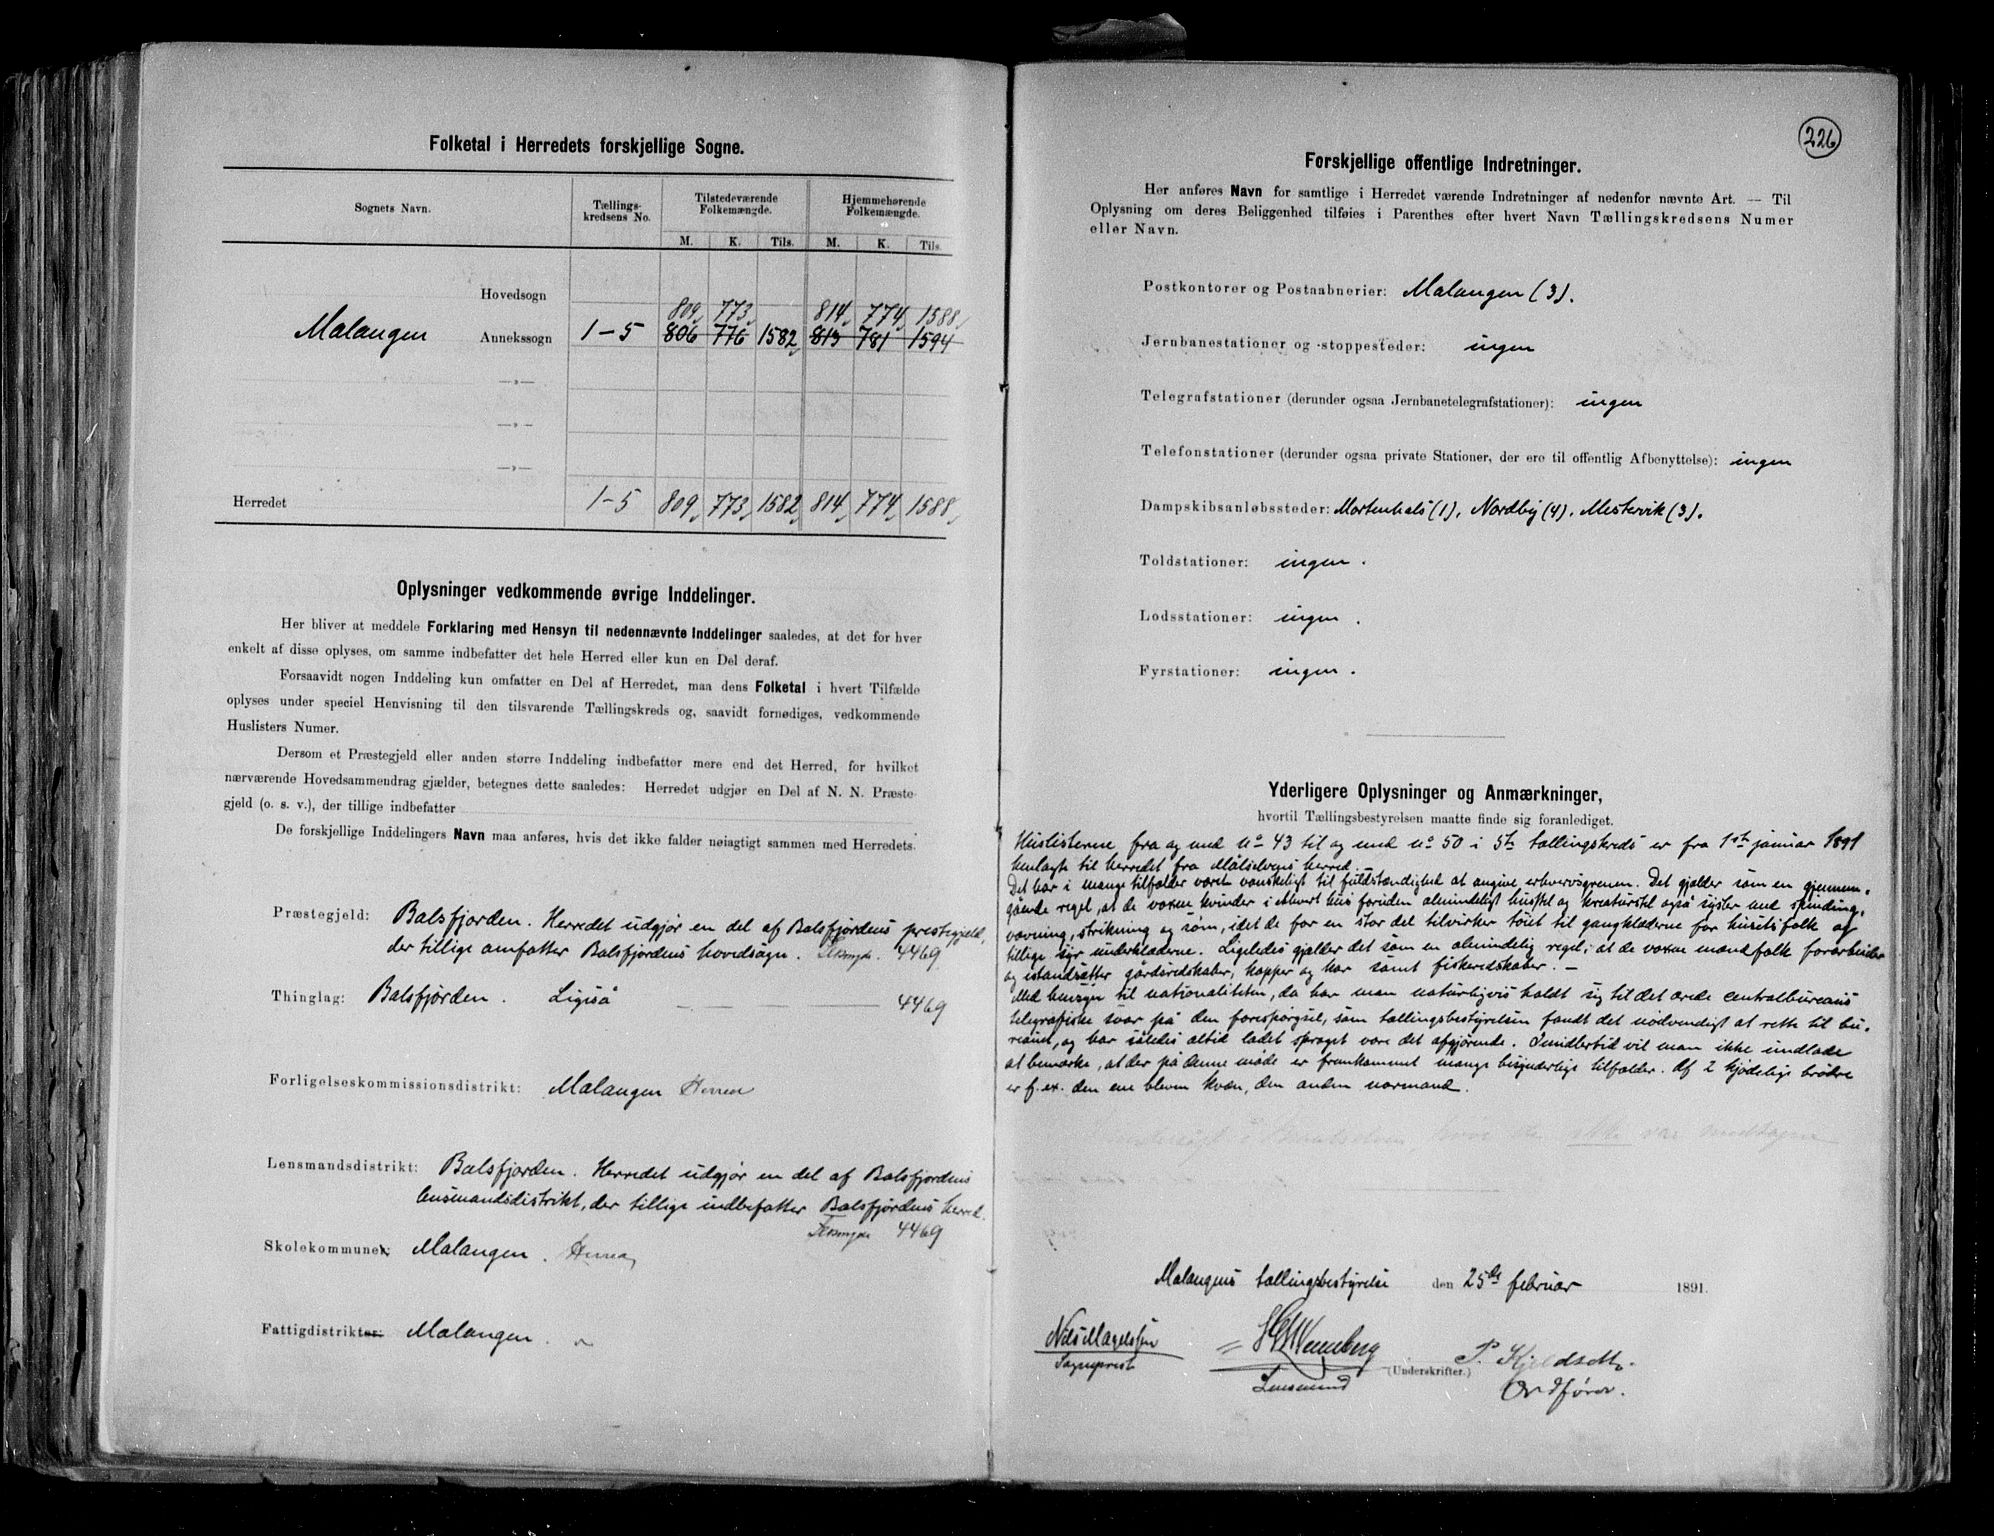 Folketal i Herredets forskjellige Sogne.
Sognets Navn.
Tællings-
kredsens No.
Tilstedeværende
Folkemængde.
Hjemmehørende
Folkemængde.
M. K. Tils. M. K. Tils.
Hovedsogn
809 773 814 774 1588
Malangen Annekssogn 1-5 806 776 1582 813 781 1594
—„—
—„—
—„—
Herredet 1-5 809 773 1582 814 774 1588
Oplysninger vedkommende øvrige Inddelinger.
Her bliver at meddele Forklaring med Hensyn til nedennævnte Inddelinger saaledes, at det for hver
enkelt af disse oplyses, om samme indbefatter det hele Herred eller kun en Del deraf.
Forsaavidt nogen Inddeling kun omfatter en Del af Herredet, maa dens Folketal i hvert Tilfælde
oplyses under speciel Henvisning til den tilsvarende Tællingskreds og, saavidt fornødiges, vedkommende
Huslisters Numer.
Dersom et Præstegjeld eller anden større Inddeling indbefatter mere end det Herred, for hvilket
nærværende Hovedsammendrag gjælder, betegnes dette saaledes: Herredet udgjør en Del af N. N. Præste-
gjeld (o. s. v.), der tillige indbefatter
De forskjellige Inddelingers Navn maa anføres, hvis det ikke falder nøiagtigt sammen med Herredets.
Præstegjeld: Balsfjorden. Herredet udgjør en del af Balsfjordens prestegjeld,
der tillige omfatter Balsfjordens hovedsogn. 4469
Thinglag: Balsfjorden. Ligeså 4469
Forligelseskommissionsdistrikt: Malangen Herred
Lensmandsdistrikt: Balsfjorden. Herredet udgjør en del af Balsfjordens
lensmandsdistrikt, der tillige indbefatter Balsfjordens herred.
4469
Skolekommuner: Malangen. Herred
Fattigdistrikter: Malangen.
226
Forskjellige offentlige Indretninger.
Her anføres Navn for samtlige i Herredet værende Indretninger af nedenfor nævnte Art. — Til
Oplysning om deres Beliggenhed tilføies i Parenthes efter hvert Navn Tællingskredsens Numer
eller Navn.
Postkontorer og Postaabnerier: Malangen (3).
Jernbanestationer og -stoppesteder: ingen
Telegrafstationer (derunder ogsaa Jernbanetelegrafstationer): ingen
Telefonstationer (derunder ogsaa private Stationer, der ere til offentlig Afbenyttelse): ingen
Dampskibsanløbssteder: Mortenhals (1), Nordby (4), Mestervik (3).
Toldstationer: ingen.
Lodsstationer: ingen.
Fyrstationer: ingen.
Yderligere Oplysninger og Anmærkninger,
hvortil Tællingsbestyrelsen maatte finde sig foranlediget.
Huslisterne fra og med No 43 til og med No 50 i 5te tællingskreds er fra 1ste januar 1891
henlagte til herredet fra Målselvens herred.
Det har i mange tilfælder været vanskeligt til fuldstændighed at angive erhvervsgrenen. Det gjælder som en gjennem-
gående regel, at de voxne kvinder i ethvert hus foruden almindeligt husstel og kreaturstel også sysler med spinding,
vævning, strikning og søm, idet de for en stor del tilvirker tøiet til gangklæderne for husets folk og
tillige syr underklæderne. Ligeledes gjælder det som en almindelig regel, at de voxne mandfolk forarbeider
og istandsætter gårdsredskaber, kopper og kar samt fiskeredskaber. —
Med hensyn til nationaliteten, da har man naturligvis holdt sig til det ærede centralbureaus
telegrafiske svar på den forespørgsel, som tællingsbestyrelsen fandt det nødvendigt at rette til bu-
reauet, og har således altid ladet sproget være det afgjørende. Imidlertid vil man ikke undlade
at bemærke, at der på denne måde er fremkommet mange besynderlige tilfælder. Af 2 kjødelige brødre
er f. ex. den ene bleven kvæn, den anden normand.
Malangens tællingsbestyrelse den 25de februar 1891.
Nils Magelssen
Sogneprest
Lensmand
(Underskrifter.)
P. Kjeldseth.
Ordfører.